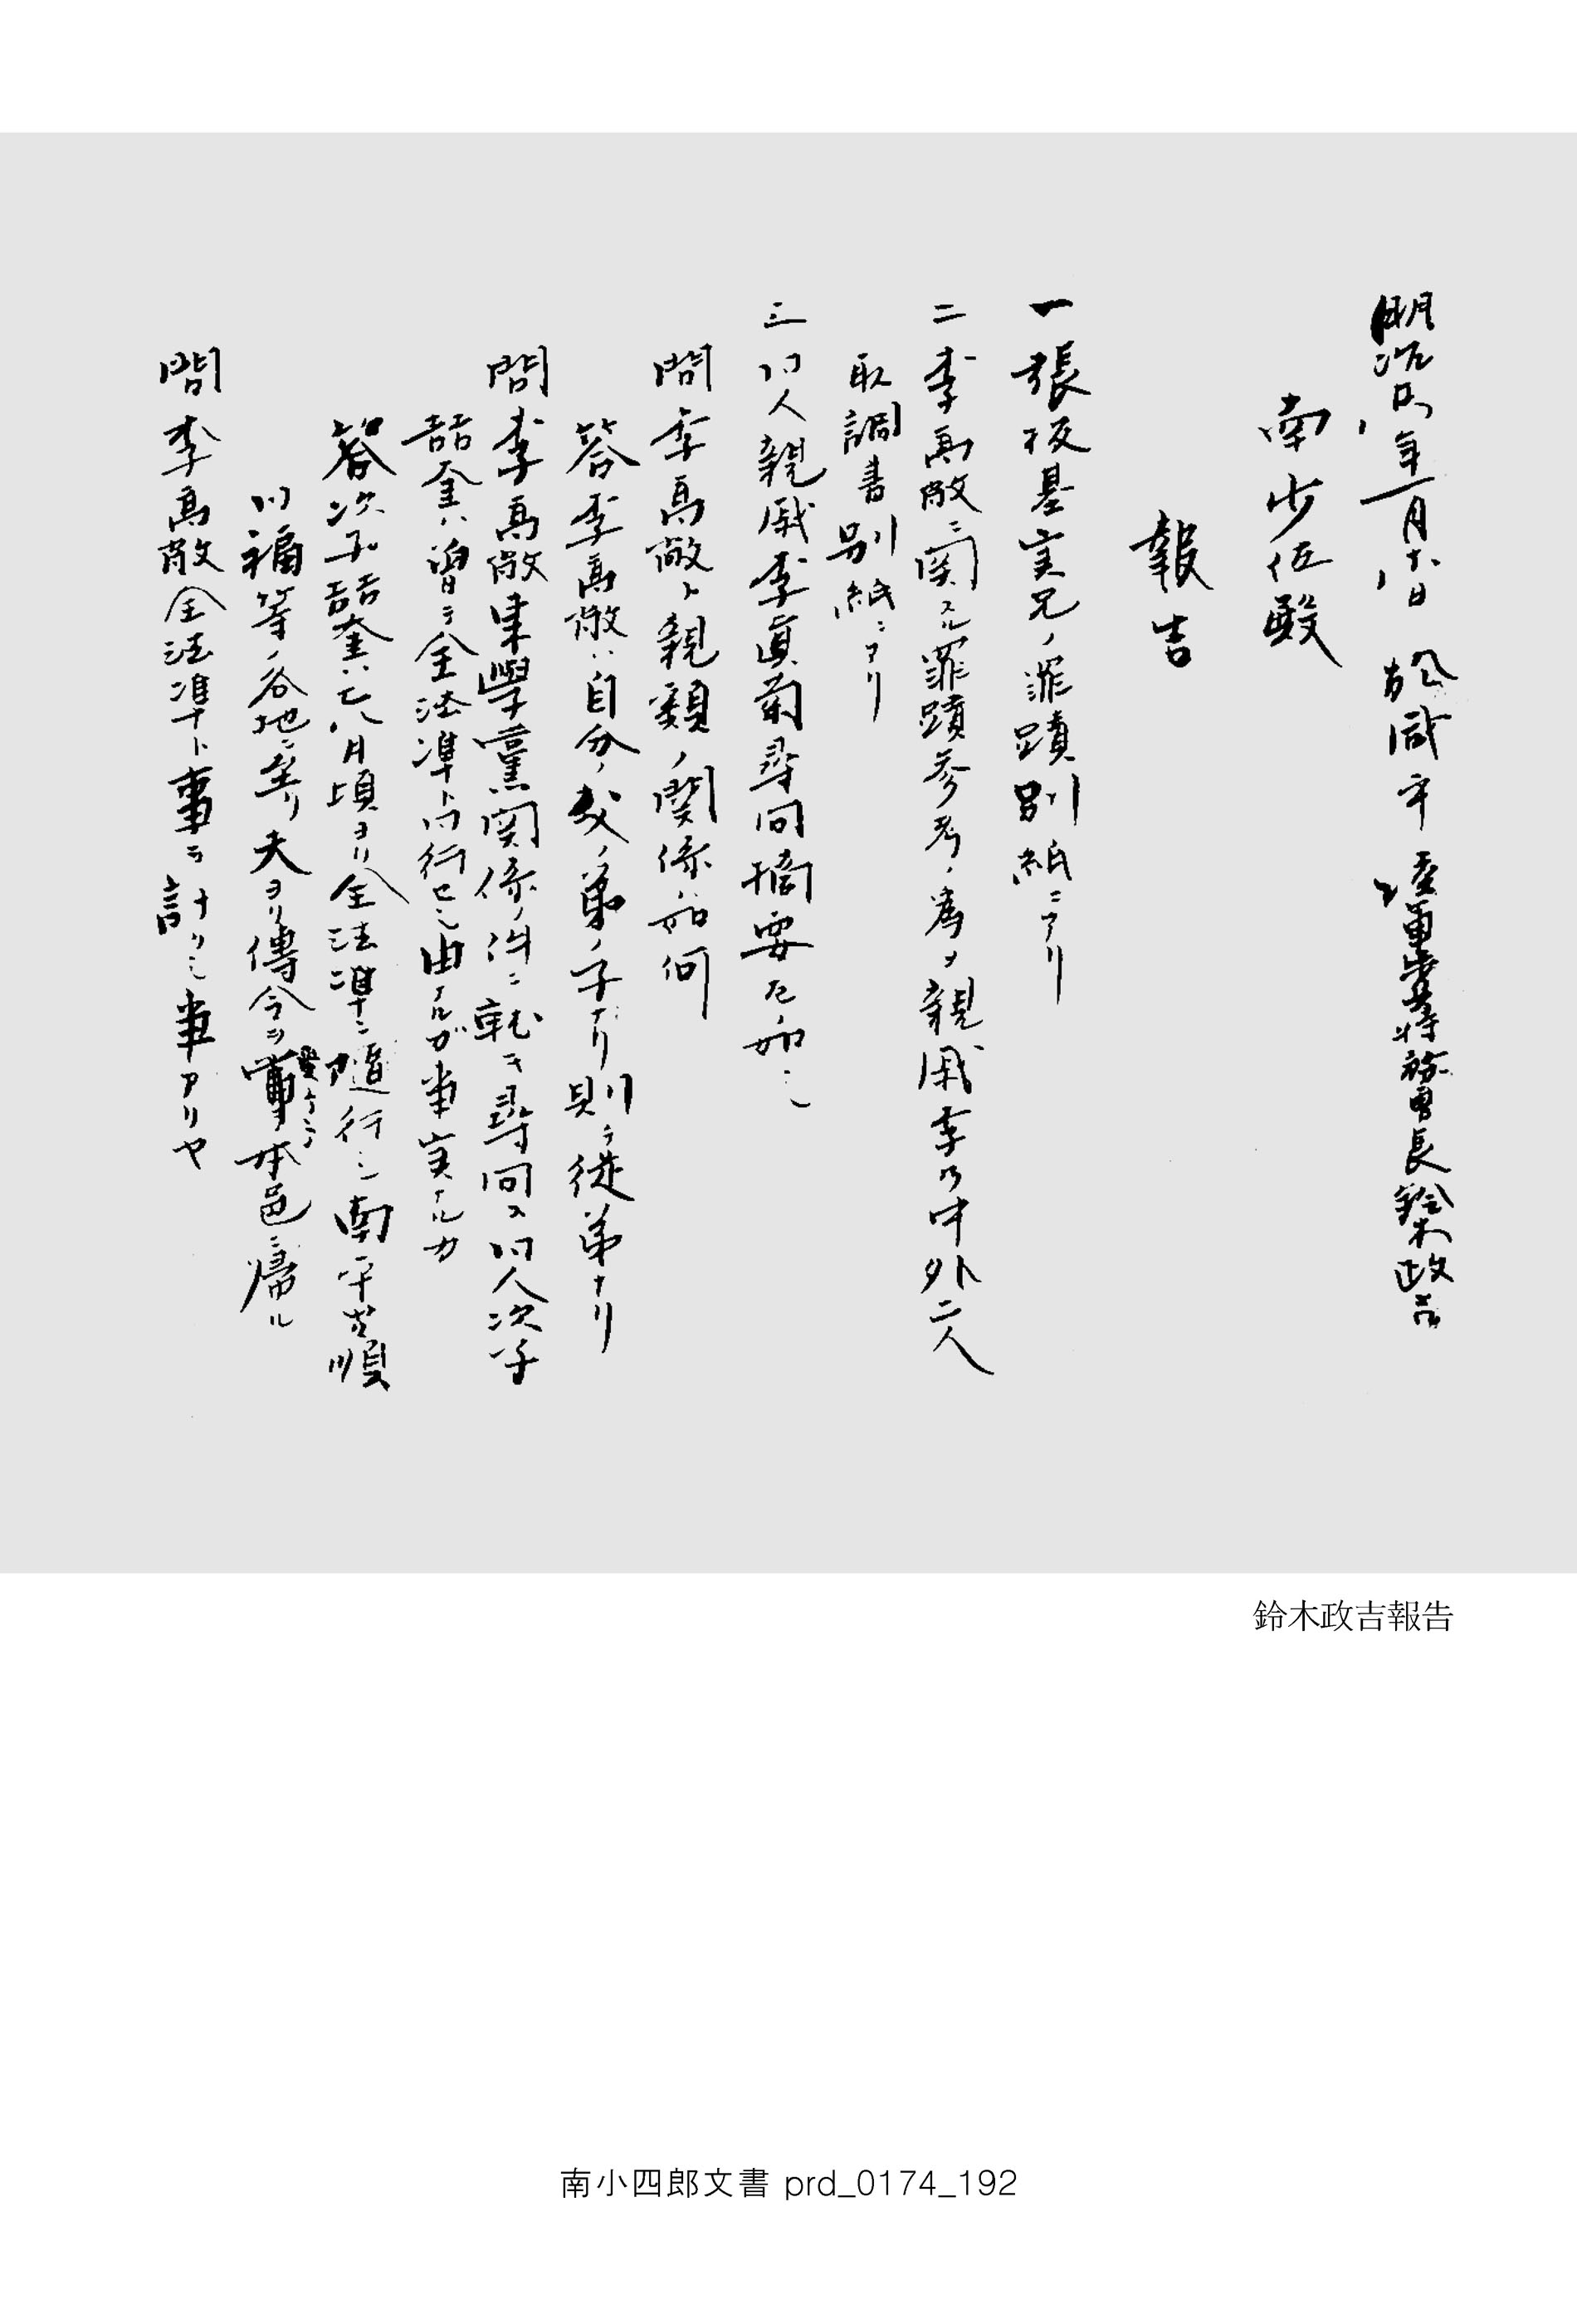 明治廿八年一月十八日 於咸平 陸軍歩兵特務曹長鈴木政吉
南少佐殿
報告
一 張板基実兄ノ罪蹟別紙ニアリ
二 李高敞ニ関スル罪蹟参考ノ為メ親戚李乃中外二人
取調書別紙ニアリ
三 仝人親戚李眞菊尋問摘要左ノ如シ
問 李高敞ト親類ノ関係如何
答 李高敞ハ自分ノ父ノ弟ノ子ナリ則チ従弟ナリ
問 李高敞東學黨関係ノ件ニ就キ尋問ス仝人次子
喆奎ハ曽テ全法準ト同行セシ由ナルガ事実ナルカ
答 次子喆奎ハ七八月頃ヨリ全法準ニ随行シ南平歩順
川福等ノ各地ニ至リ夫ヨリ傳令ヲ受ケテ本邑ニ帰ル
問 李高敞全法準ト事ヲ計リシ事アリヤ
鈴木政吉報告
南小四郎文書 prd_0174_192